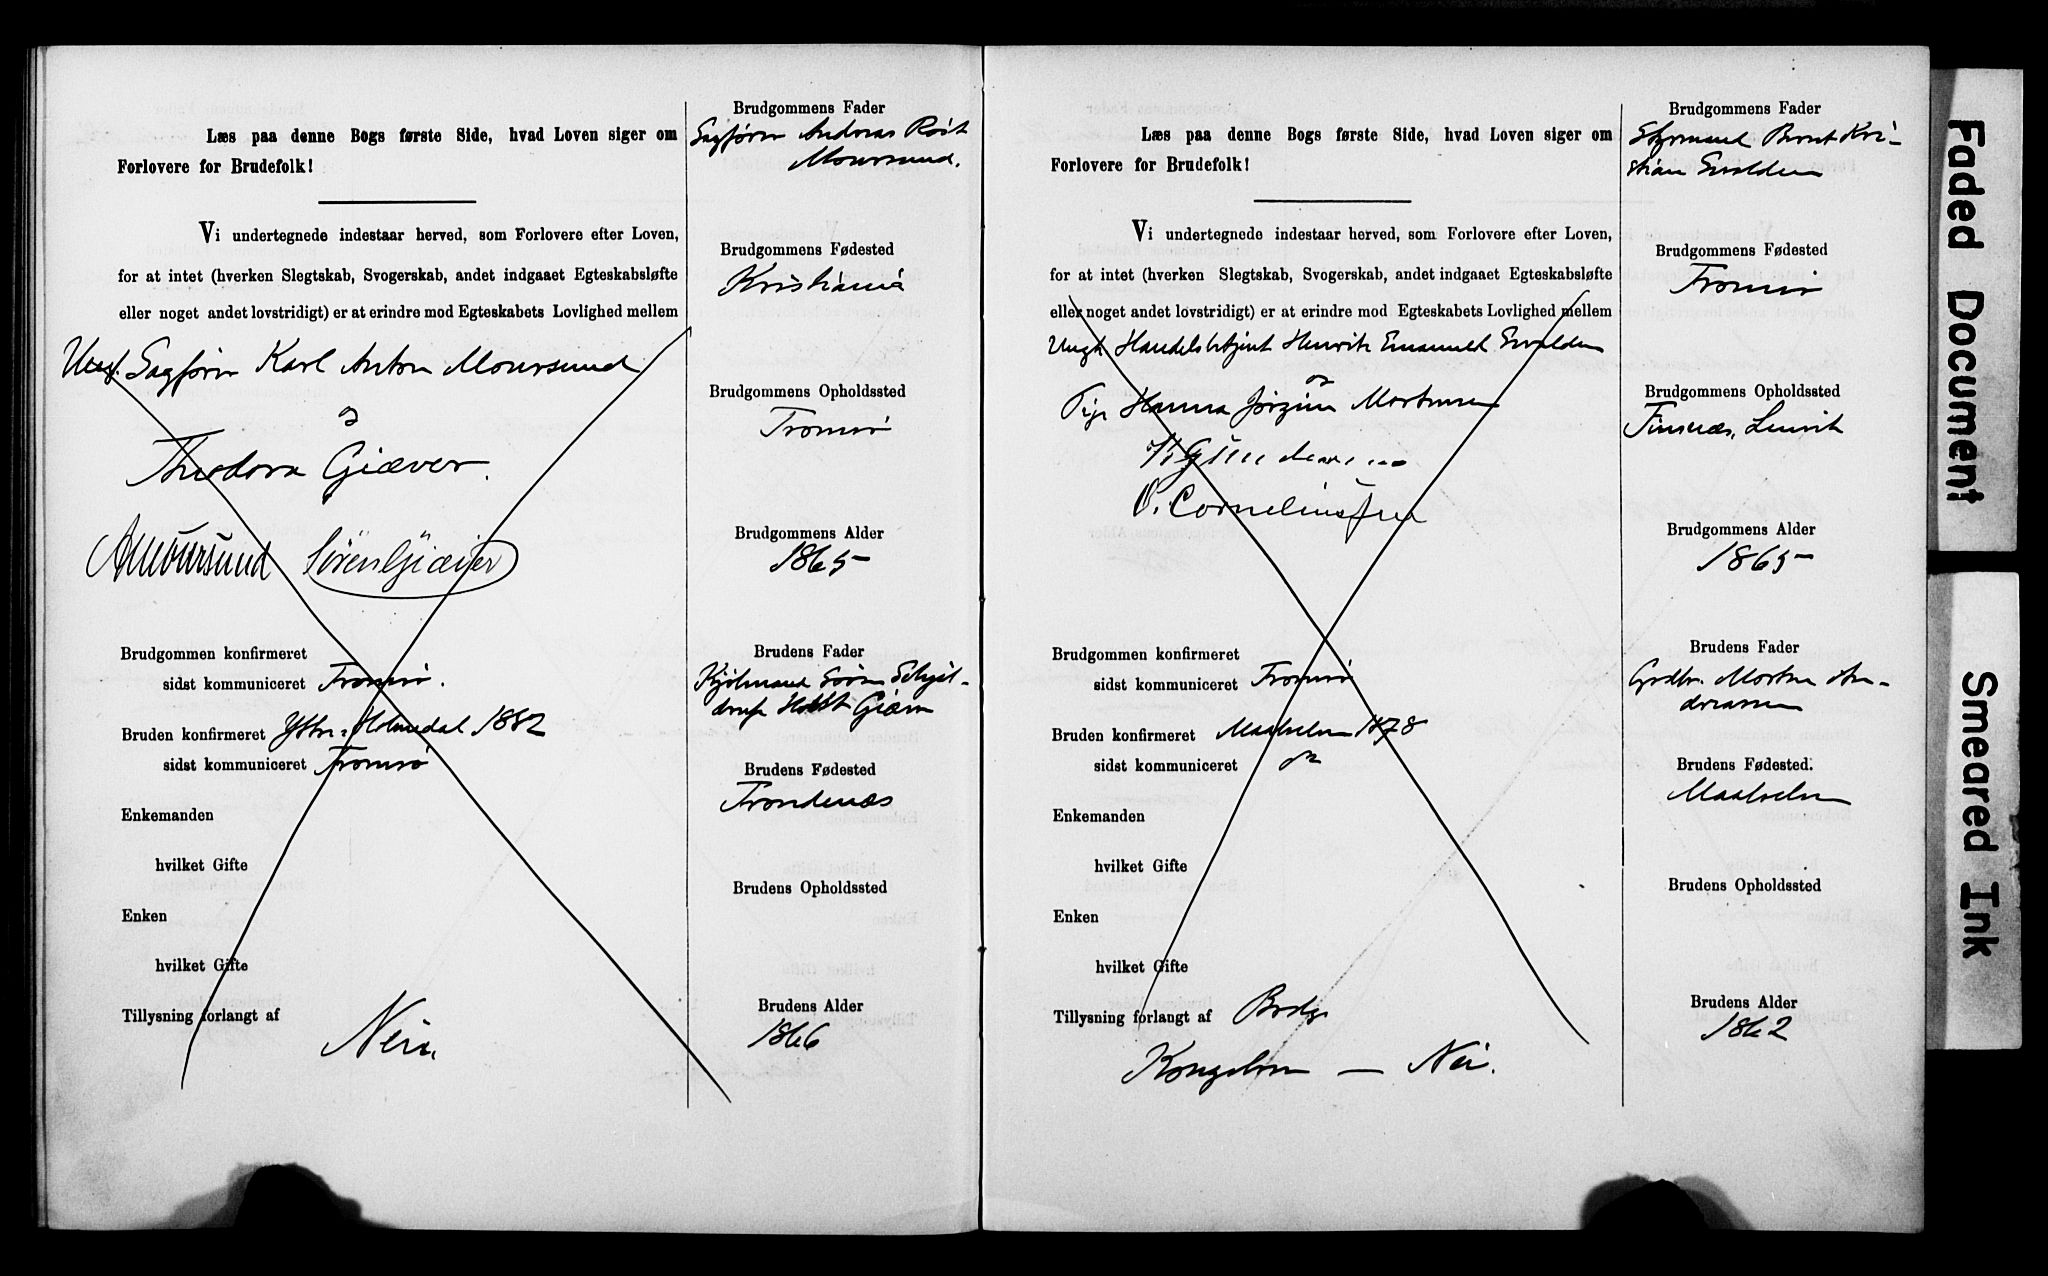 Læs paa denne Bogs første Side, hvad Loven siger om
Forlovere for Brudefolk!
Vi undertegnede indestaar herved, som Forlovere efter Loven,
for at intet (hverken Slegtskab, Svogerskab, andet indgaaet Egteskabsløfte
eller noget andet lovstridigt) er at erindre mod Egteskabets Lovlighed mellem
Sagfører Karl Anton Moursund
og
Theodora Giæver.
AMoursund SørenGiæver
Brudgommen konfirmeret
sidst kommuniceret Tromsø.
Bruden konfirmeret Ytre-Holmedal 1882
sidst kommuniceret Tromsø
Enkemanden
hvilket Gifte
Enken
hvilket Gifte
Tillysning forlangt af
Nei.
Brudgommens Fader
Sagfører Andreas Röst
Moursund.
Brudgommens Fødested
Kristiania
Brudgommens Opholdssted
Tromsø
Brudgommens Alder
1865
Brudens Fader
Kjøbmand Søren Schjel-
derup Holst Giæver
Brudens Fødested
Trondenæs
Brudens Opholdssted
Brudens Alder
1866
Læs paa denne Bogs første Side, hvad Loven siger om
Forlovere for Brudefolk!
Vi undertegnede indestaar herved, som Forlovere efter Loven,
for at intet (hverken Slegtskab, Svogerskab, andet indgaaet Egteskabsløfte
eller noget andet lovstridigt) er at erindre mod Egteskabets Lovlighed mellem
Ungk Handelsbetjent Henrik Emanuel Evaldsen
og
Pige Hanna Jørgine Mortensen
O. Corneliussen
Brudgommen konfirmeret
sidst kommuniceret Tromsø
Bruden konfirmeret Maalselven 1878
sidst kommuniceret do
Enkemanden
hvilket Gifte
Enken
hvilket Gifte
Tillysning forlangt af Brudg.
— Nei.
Brudgommens Fader
Styrmand Bernt Kri-
stian Evaldsen
Brudgommens Fødested
Tromsø
Brudgommens Opholdssted
Finsnæs, Lenvik
Brudgommens Alder
1865
Brudens Fader
Grdbr. Morten An-
dreassen
Brudens Fødested.
Maalselven
Brudens Opholdssted
Brudens Alder
1862
Faded Document
Smeared Ink